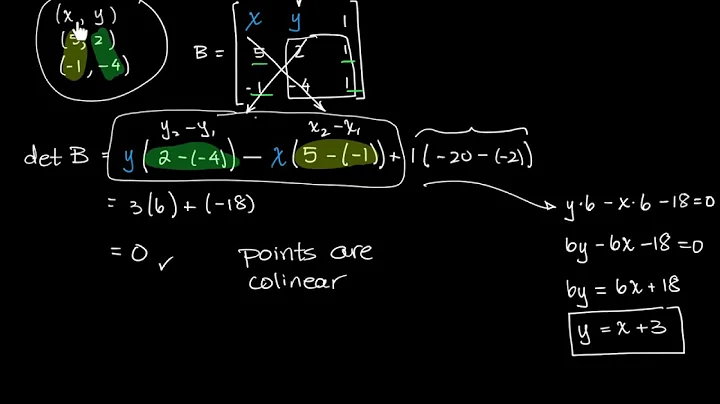 (x, y)
(5, 2)
(-1, -4)
B = [ x y 1
5 2 1
-1 -4 1 ]
y₂-y₁ x₂-x₁
det B = y (2-(-4)) - x (5-(-1)) + 1(-20-(-2))
= 3(6) + (-18)
= 0 ✓
points are
colinear
y·6 - x·6 - 18 = 0
6y - 6x - 18 = 0
6y = 6x + 18
y = x + 3